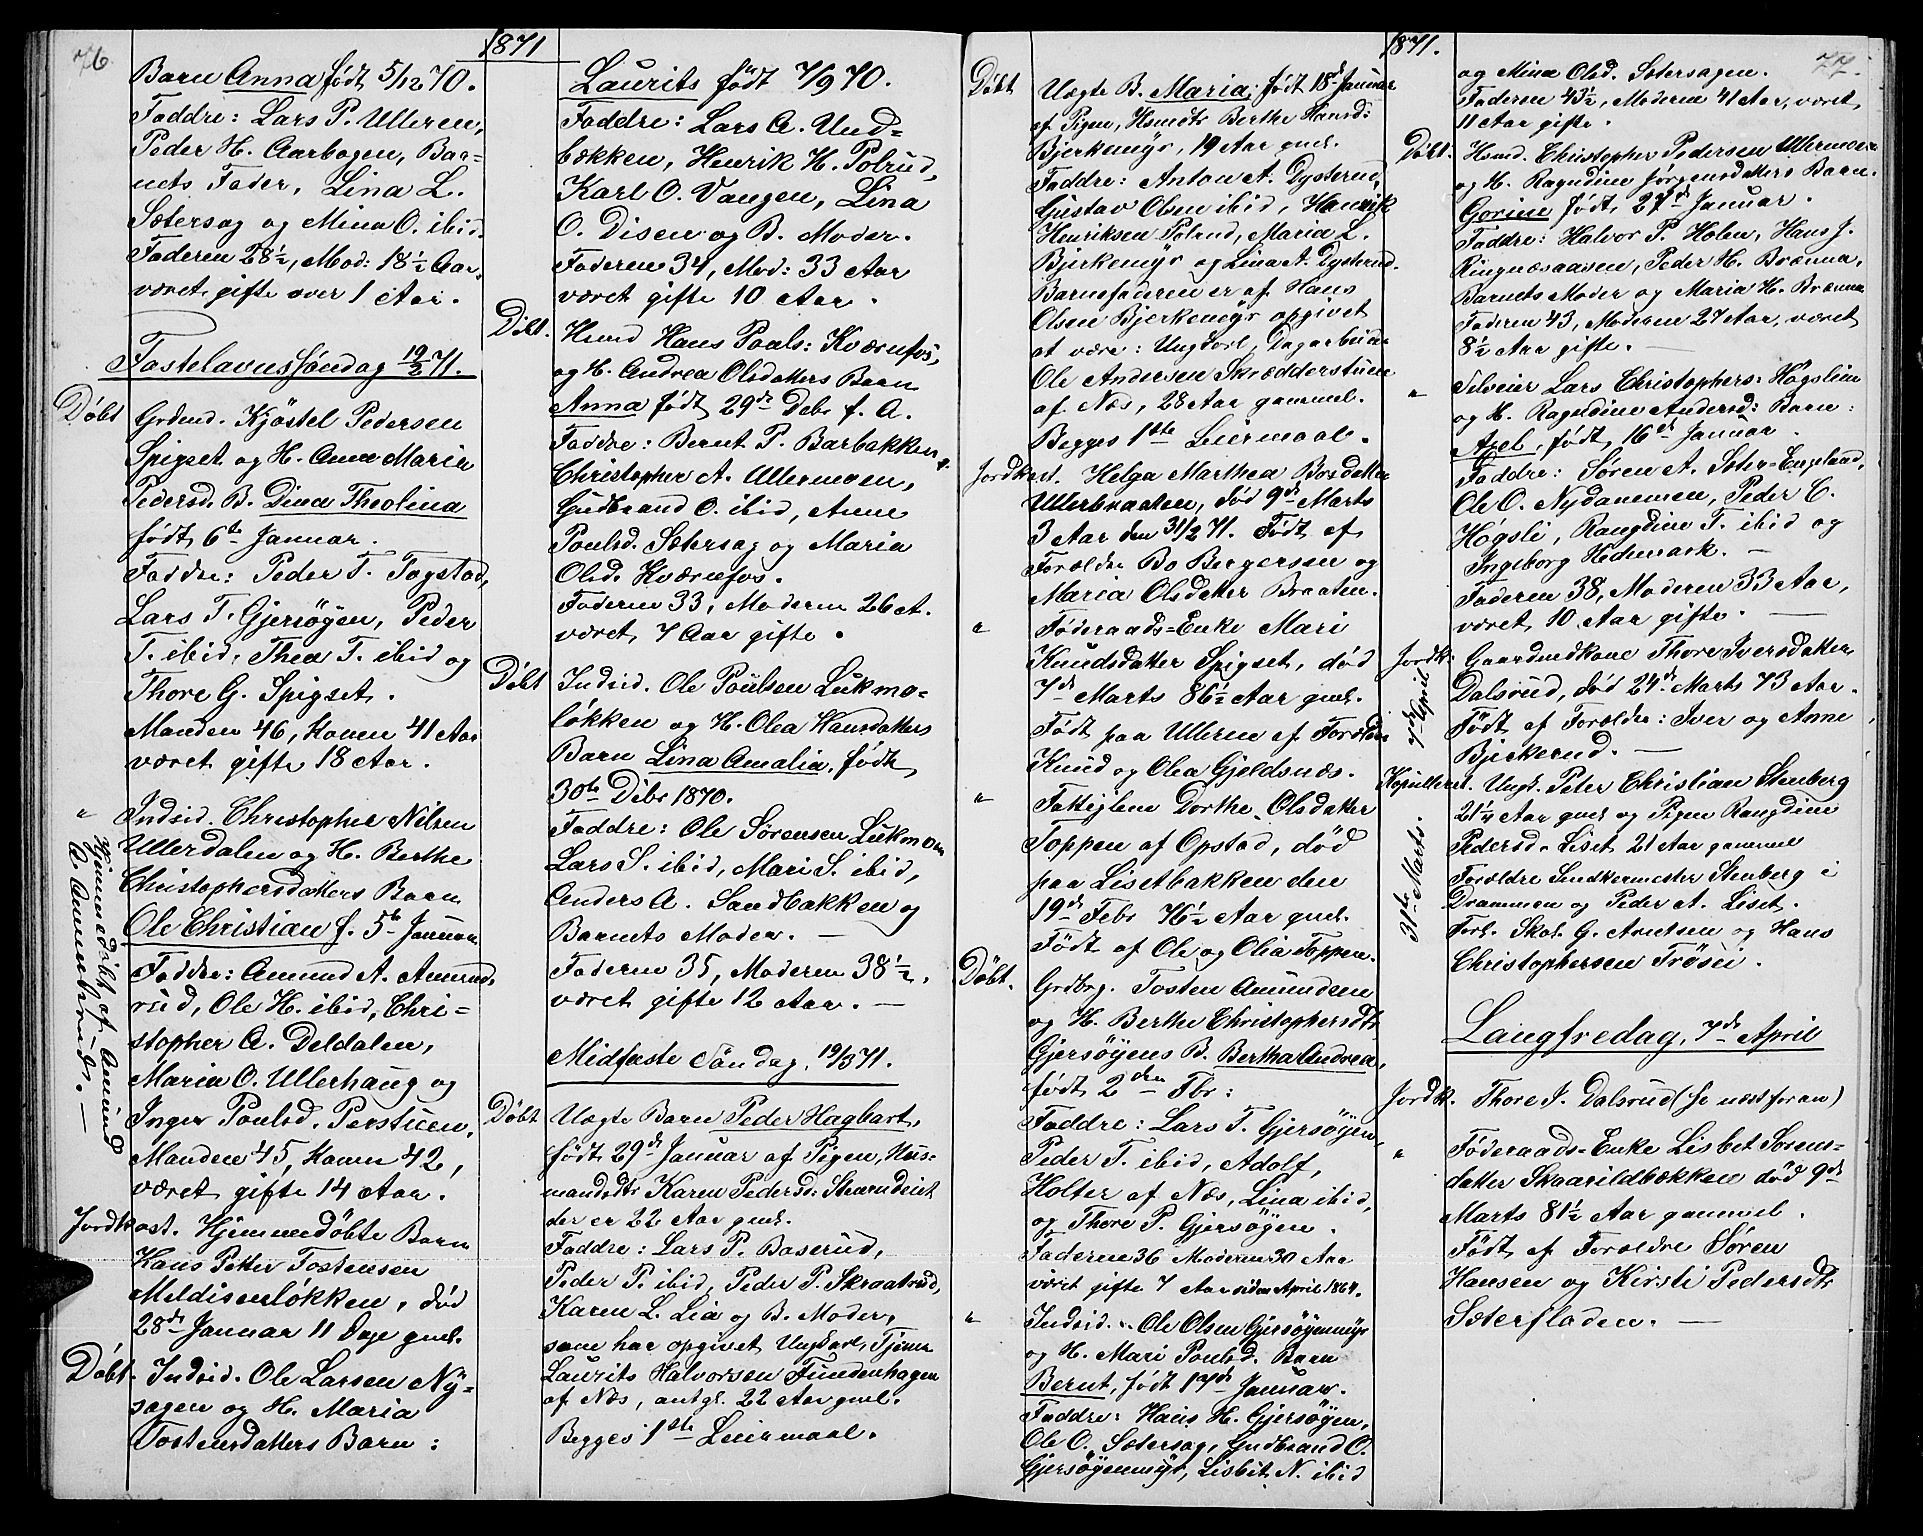 76.
1871
Barn Anna født 5/12 70.
Faddre: Lars P. Ulleren,
Peder H. Aarbogen, Bar=
nets Fader, Lina L.
Sætersag og Mina O. ibid.
Faderen 28½, Mod: 18½ Aar,
været gifte over 1 Aar.
Fastelavnssøndag 19/2 71.
Døbt Grdmd. Kjøstel Pedersen
Spigset og H. Anne Maria
Pedersd. B. Dina Theolina
født 6te Januar.
Faddre: Peder T. Togstad,
Lars T. Gjersøyen, Peder
T. ibid, Thea T. ibid og
Thore G. Spigset.
Manden 46, Konen 41 Aar
været gifte 18 Aar.
" Indsid. Christopher Nilsen
Ullerdalen og H. Berthe
Christophersdatters Barn
Ole Christian f. 5te Januar
Faddre: Amund A. Amund
rud, Ole H. ibid, Chri=
stopher A. Deldalen,
Maria O. Ullerhaug og
Inger Poulsd. Perstuen.
Manden 45, Konen 42,
været gifte 14 Aar.
Hjemmedøbt af Amund
A. Amundsrud. —
Jordkast. Hjemmedøbte Barn
Hans Petter Tostensen
Meldisenløkken, død
28de Januar 11 Dage gml.
Døbt. Indsid. Ole Larsen Ny=
sagen og H. Maria
Tostensdatters Barn:
Laurits født 7/9 70.
Faddre: Lars A. Und=
bækken, Henrik H. Polrud,
Karl O. Vangen, Lina
O. Disen og B. Moder.
Faderen 34, Mod: 33 Aar
været gifte 10 Aar.
Døbt. Hsmd Hans Pouls: Kværnfos,
og H. Andrea Olsdatters Barn
Anna født 29de Debr f. A.
Faddre: Bernt P. Barbakken,
Christopher A. Ullermoen,
Gudbrand O. ibid, Anne
Poulsd. Sætersag og Maria
Olsd. Kværnfos.
Faderen 33, Moderen 26 A.
været 7 Aar gifte.
Døbt Indsid. Ole Poulsen Lukmo=
løkken og H. Olea Hansdatters
Barn Lina Amalia, født
30te Debr 1870.
Faddre: Ole Sørensen Lukmoen
Lars S. ibid, Mari S. ibid,
Anders A. Sandbakken og
Barnets Moder. —
Faderen 35, Moderen 38½,
været gifte 12 Aar. —
Midfaste Søndag, 19/3 71.
Døbt Uægte Barn Peder Hagbart,
født 29de Januar af Pigen, Hus=
mandsdtr Karen Pedersd. Stenrudeiet
der er 22 Aar gml.
Faddre: Lars P. Baserud,
Peder P. ibid, Peder P. Skraatrud,
Karen L. Lia og B. Moder,
som har opgivet Ungkarl, Tjener
Laurits Halvorsen Fundenhagen
af Næs, antgl. 22 Aar gml.
Begges 1ste Leiermaal.
1871.
77.
Døbt Uægte B. Maria, født 18de Januar
af Pigen, Hsmdtr Berthe Hansd:
Bjerkemyr, 19 Aar gml.
Faddre: Anton A. Dysterud,
Gustav Olsen ibid, Henrik
Henriksen Polrud, Maria L.
Bjerkemyr og Lina A. Dysterud.
Barnefaderen er af Hans
Olsen Bjerkemyr opgivet
at være: Ungkarl, Dagarbeider
Ole Andersen Skrædderstuen
af Næs, 28 Aar gammel.
Begges 1ste Leiermaal.
Jordkast. Helga Marthea Bosdatter
Ullerbraaten, død 9de Marts
3 Aar den 31/2 71. Født af
Forældre Bo Bergersen og
Maria Olsdatter Braaten.
" Føderaads=Enke Mari
Knudsdatter Spigset, død
7de Marts 86½ Aar gml.
Født paa Ullern af Forældre
Knud og Olea Gjeldsnæs.
" Fattiglem Dorthe Olsdatter
Toppen af Opstad, død
paa Lisetbakken den
19de Febr 76½ Aar gml.
Født af Ole og Olia Toppen.
Døbt. Grdbrg. Tosten Amundsen
og H. Berthe Christophersdtr
Gjersøyens B. Bertha Andrea,
født 2den Fbr:
Faddre: Lars T. Gjersøyen,
Peder T. ibid, Adolf,
Holter af Næs, Lina ibid,
og Thore P. Gjersøyen.
Faderen 36 Moderen 30 Aar
været gifte 7 Aar siden April 1864.
" Indsid. Ole Olsen Gjersøyenmyr
og H. Mari Poulsd. Barn
Bernt, født 17de Januar.
Faddre: Hans H. Gjersøyen,
Ole O. Sætersag, Gudbrand O.
Gjersøyenmyr, Lisbet N. ibid
og Mina Olsd. Sætersagen.
Faderen 43½, Moderen 41 Aar, været
11 Aar gifte.
Døbt. Hsmd. Christopher Pedersen Ullermoen
og H. Ragndine Jørgensdatters Barn
Gorine født 27de Januar.
Faddre: Halvor P. Holen, Hans J.
Ringnæsaasen, Peder H. Brænna,
Barnets Moder og Maria H. Brænna
Faderen 43, Moderen 27 Aar, været
8½ Aar gifte. —
" Selveier Lars Christophers: Høgslien
og H. Ragndine Andersd: Barn:
Axel, født 16de Januar.
Faddre: Søren A. Sæter=Engeland,
Ole O. Nydanemoen, Peder C.
Høgsli, Rangdine T. ibid og
Ingeborg Hedemark. —
Faderen 38, Moderen 33 Aar,
været 10 Aar gifte. —
Jordk. 7de April Gaardmdkone Thore Iversdatter
Dalsrud, død 24de Marts 73 Aar.
Født af Forældre: Iver og Anne
Bjerkerud. —
Kopulleret. 31te Marts. Ungk. Peter Christian Stenberg
21¼ Aar gml og Pigen Rangdine
Pedersd. Liset 21 Aar gammel
Forældre Snedkermester Stenberg i
Drammen og Peder A. Liset.
Forl. Skol. G. Arntsen og Hans
Christophersen Trøsei.
Langfredag, 7de April
Jordk. Thore I. Dalsrud (se næst foran)
" Føderaads=Enke Lisbet Sørens=
datter Skaarildbækken død 9de
Marts 81½ Aar gammel.
Født af Forældre Søren
Hansen og Kirsti Pedersdtr
Sæterfloden. —